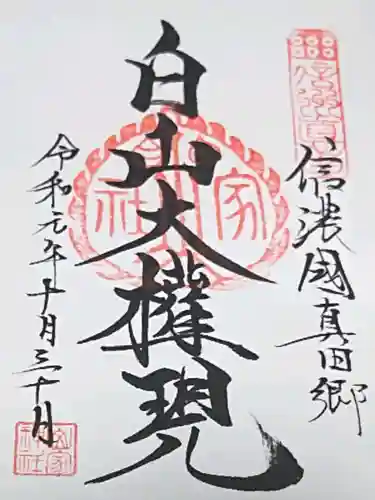 信濃國真田郷
白山大権現
令和元年十月三十日